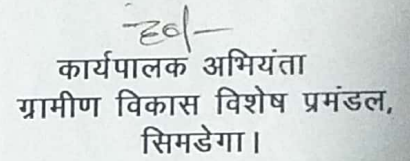 ह०/-
कार्यपालक अभियंता
ग्रामीण विकास विशेष प्रमंडल,
सिमडेगा।